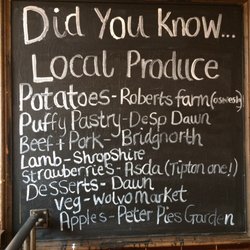 Did You Know...
Local Produce
Potatoes - Roberts farm (oswest)
Puffy Pastry - DeSp Dawn
Beef + Pork - Bridgnorth
Lamb - Shropshire
Strawberries - Asda (Tipton one!)
Desserts - Dawn
Veg - Wolvo market
Apples - Peter Pies Garden